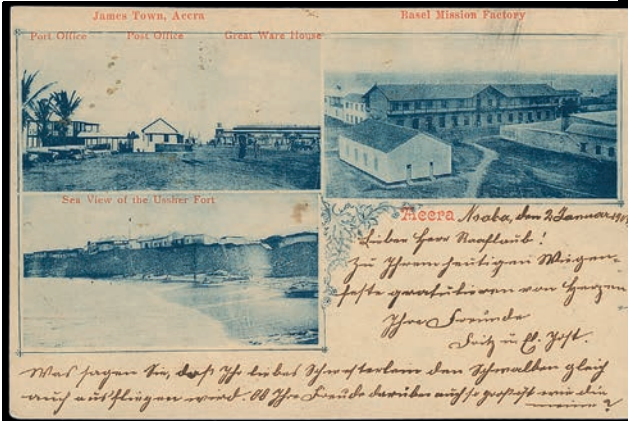 James Town, Accra
Basel Mission Factory
Port Office Post Office Great Ware House
Sea View of the Ussher Fort
Accra Nsaba, den 2. Januar
Lieben Herr Nachlaub!
Zu Ihrem heutigen Wiegen-
feste gratulieren von Herzen
Ihre Freunde
Fritz u. El. Jost.
Was sagen Sie, daß Ihr liebes Schwesterlein den Schwalben gleich
auch ausfliegen werd. Ob Ihre Freude darüber auch so groß ist wie die
meine?